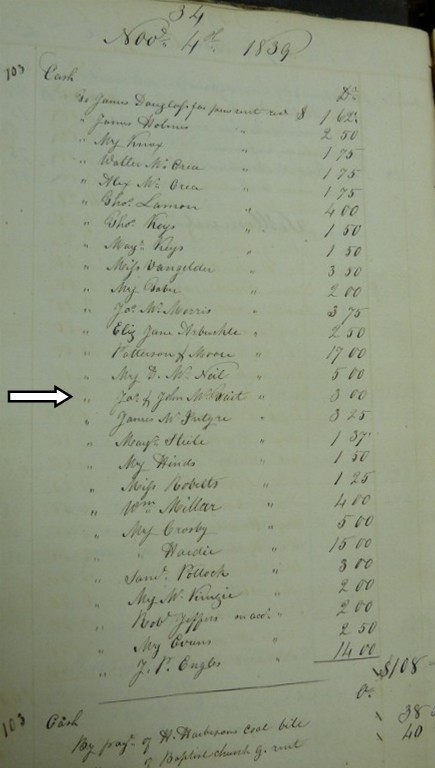 34
Novr 4th 1839
103 Cash
Dr
To James Douglass for pew rent recd $ 1 62½
" James Holmes " 2 50
" Mrs Knox 1 75
" Walter McCrea " 1 75
" Alex McCrea " 1 75
" Thos Lamon " 4 00
" Thos Keys " 1 50
" Margt Keys " 1 50
" Miss Vangelder " 3 50
" Mrs " 2 00
" Jos McMorris " 3 75
" Eliz Jane Arbuckle " 2 50
" Patterson & Moore " 17 00
" Mrs D. McNeil " 5 00
" Jos & John McWait " 3 00
" James McIntyre " 3 25
" Margt Steele " 1 37½
" Mrs Hinds " 1 50
" Miss Roberts " 1 25
" Wm Millar " 4 00
" Mrs Crosby " 5 00
" " Hardie " 15 00
" Saml Pollock " 3 00
" Mrs McKinzie " 2 00
" Robt Jeffers on acct " 2 00
" Mrs Evans " 2 50
" J. P. Engles " 14 00
$108
Cr
103 Cash
By payt of H. Harbesons coal bill 38
of Baptist church g. rent 40